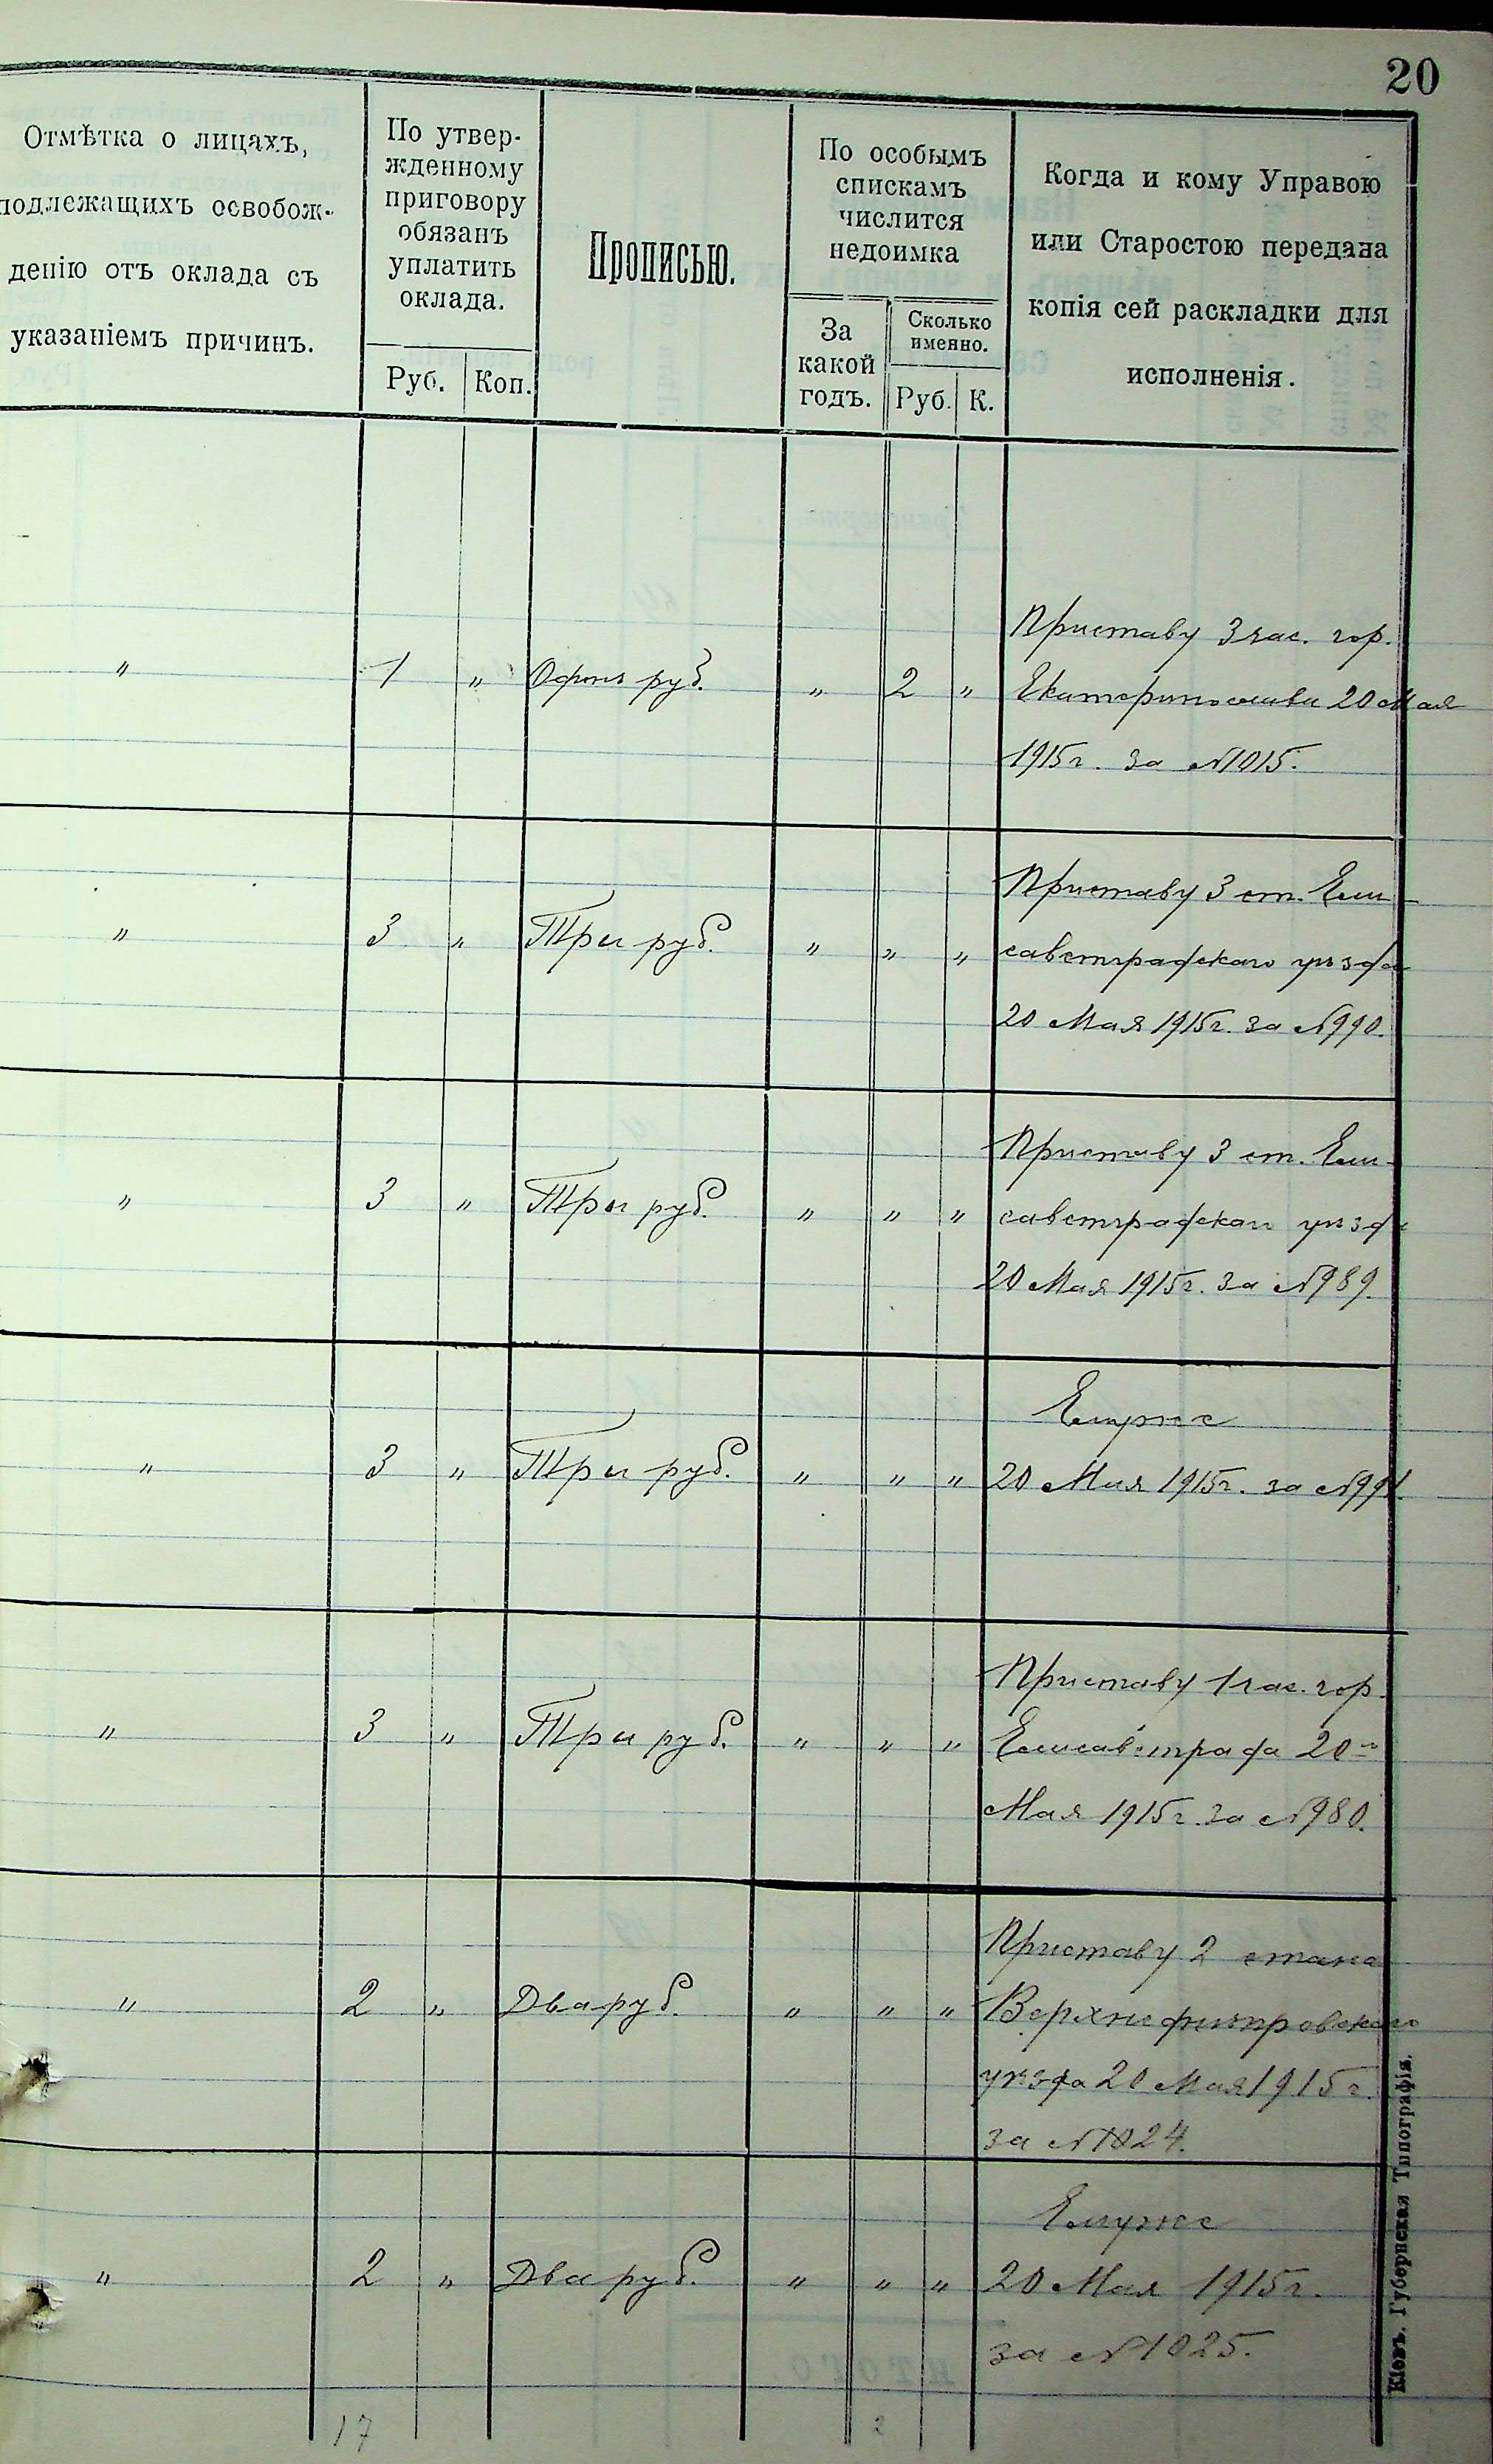 20
Отмѣтка о лицахъ,
подлежащихъ освобож-
денію отъ оклада съ
указаніемъ причинъ.
По утвер-
жденному
приговору
обязанъ
уплатить
оклада.
Руб. Коп.
Прописью.
По особымъ
спискамъ
числится
недоимка
За
какой
годъ.
Сколько
именно.
Руб. К.
Когда и кому Управою
или Старостою передана
копія сей раскладки для
исполненія.
Приставу 3 час. гор.
" 1 " Одинъ руб. " 2 " Екатеринослава 20 Мая
1915 г. за №1015.
Приставу 3 ст. Ели-
" 3 " Три руб. " " " саветградскаго уѣзда
20 Мая 1915 г. за №990.
Приставу 3 ст. Ели-
" 3 " Три руб. " " " саветградскаго уѣзда
20 Мая 1915 г. за №989.
Ему же
" 3 " Три руб. " " " 20 Мая 1915 г. за №991.
Приставу 1 час. гор.
" 3 " Три руб. " " " Елисаветграда 20го
Мая 1915 г. за №980.
Приставу 2 стана
" 2 " Два руб. " " " Верхнеднѣпровскаго
уѣзда 20 Мая 1915 г.
за №1024.
Ему же
" 2 " Два руб. " " " 20 Мая 1915 г.
за №1025.
17
Кіевъ. Губернская Типографія.